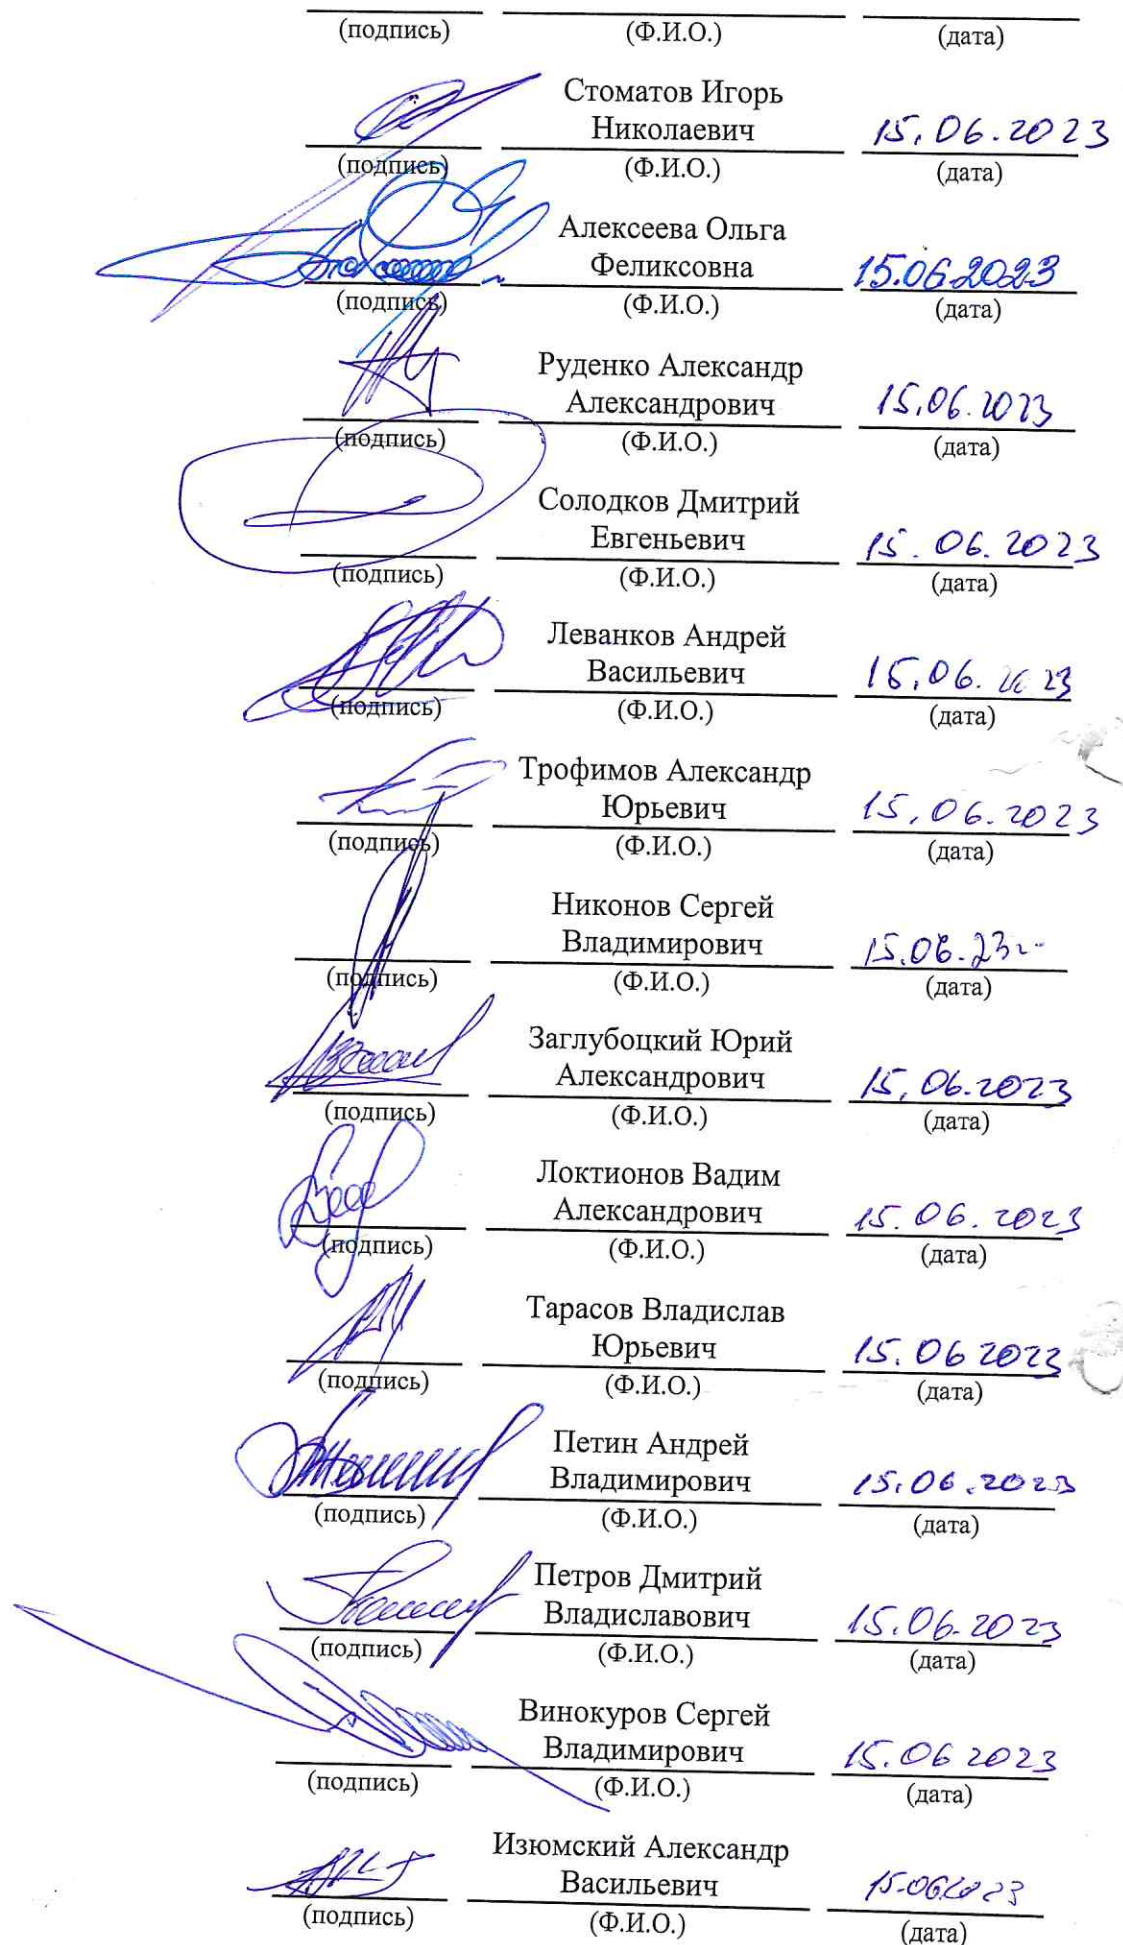 (подпись) (Ф.И.О.) (дата)
Стоматов Игорь
Николаевич 15.06.2023
(подпись) (Ф.И.О.) (дата)
Алексеева Ольга
Феликсовна 15.06.2023
(подпись) (Ф.И.О.) (дата)
Руденко Александр
Александрович 15.06.2023
(подпись) (Ф.И.О.) (дата)
Солодков Дмитрий
Евгеньевич 15.06.2023
(подпись) (Ф.И.О.) (дата)
Леванков Андрей
Васильевич 15.06.2023
(подпись) (Ф.И.О.) (дата)
Трофимов Александр
Юрьевич 15.06.2023
(подпись) (Ф.И.О.) (дата)
Никонов Сергей
Владимирович 15.06.23
(подпись) (Ф.И.О.) (дата)
Заглубоцкий Юрий
Александрович 15.06.2023
(подпись) (Ф.И.О.) (дата)
Локтионов Вадим
Александрович 15.06.2023
(подпись) (Ф.И.О.) (дата)
Тарасов Владислав
Юрьевич 15.06 2023
(подпись) (Ф.И.О.) (дата)
Петин Андрей
Владимирович 15.06.2023
(подпись) (Ф.И.О.) (дата)
Петров Дмитрий
Владиславович 15.06.2023
(подпись) (Ф.И.О.) (дата)
Винокуров Сергей
Владимирович 15.06 2023
(подпись) (Ф.И.О.) (дата)
Изюмский Александр
Васильевич 15.06.2023
(подпись) (Ф.И.О.) (дата)